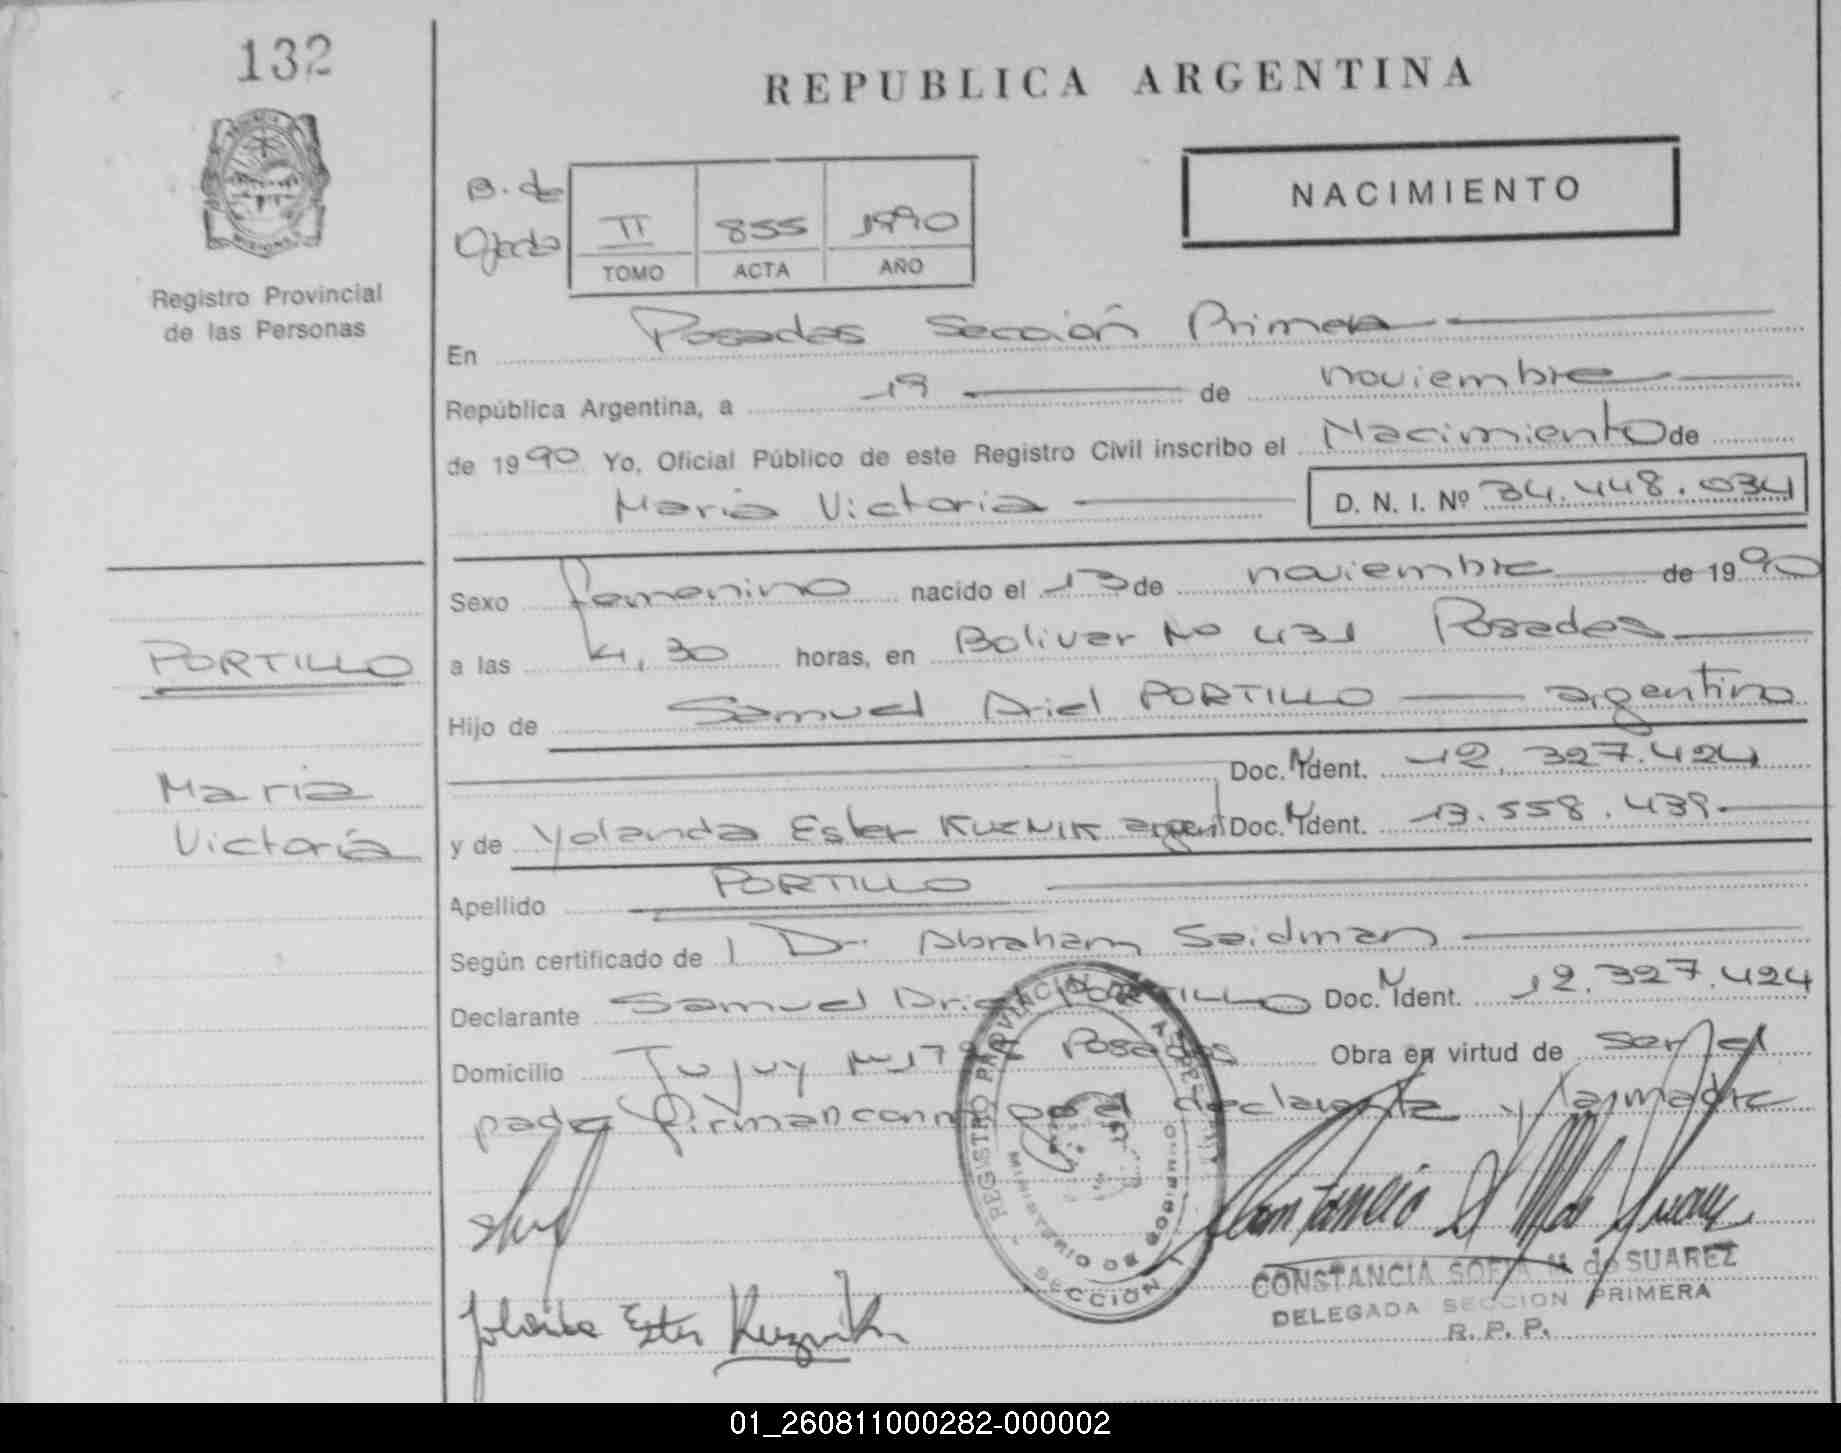 132
REPUBLICA ARGENTINA
NACIMIENTO
B. de
II 855 1990
TOMO ACTA AÑO
Registro Provincial
de las Personas
En Posadas Sección Primera
República Argentina, a 19 de noviembre
de 1990 Yo, Oficial Público de este Registro Civil inscribo el Nacimiento de
María Victoria D. N. I. Nº 34.448.034
Sexo femenino nacido el 13 de noviembre de 1990
a las 4,30 horas, en Bolivar Nº 431 Posadas
PORTILLO
Hijo de Samuel Ariel PORTILLO argentino
Doc. Ident. 12.327.424
María
Victoria
y de Yolanda Ester KUZNIK argent Doc. Ident. 13.558.439
Apellido PORTILLO
Según certificado de l Dr. Abraham Seidman
Declarante Samuel Ariel PORTILLO Doc. Ident. 12.327.424
Domicilio Jujuy Posadas Obra en virtud de ser el
padre firman declarante y la madre
REGISTRO PROVINCIAL DE LAS PERSONAS
MINISTERIO DE GOBIERNO
SECCION 1
CONSTANCIA SOFIA M. de SUAREZ
DELEGADA SECCION PRIMERA
R. P. P.
Yolanda Ester Kuznik
01_260811000282-000002